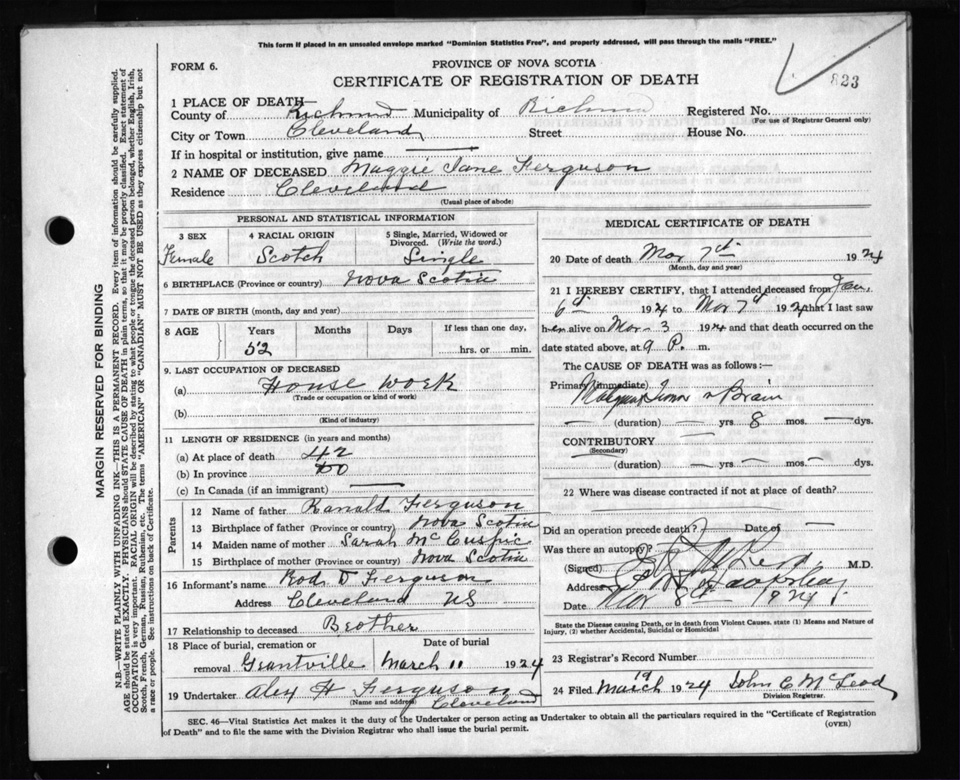 This form if placed in an unsealed envelope marked "Dominion Statistics Free", and properly addressed, will pass through the mails "FREE."
FORM 6.
PROVINCE OF NOVA SCOTIA
CERTIFICATE OF REGISTRATION OF DEATH
823
1 PLACE OF DEATH—
County of Richmond Municipality of Richmond Registered No.
(For use of Registrar General only)
City or Town Cleveland Street House No.
If in hospital or institution, give name
2 NAME OF DECEASED Maggie Jane Ferguson
Residence Cleveland
(Usual place of abode)
PERSONAL AND STATISTICAL INFORMATION
3 SEX 4 RACIAL ORIGIN 5 Single, Married, Widowed or Divorced. (Write the word.)
Female Scotch Single
6 BIRTHPLACE (Province or country) Nova Scotia
7 DATE OF BIRTH (month, day and year)
8 AGE Years Months Days If less than one day,
52 hrs. or min.
9. LAST OCCUPATION OF DECEASED
(a) House work
(Trade or occupation or kind of work)
(b)
(Kind of industry)
11 LENGTH OF RESIDENCE (in years and months)
(a) At place of death 42
(b) In province
(c) In Canada (if an immigrant)
Parents
12 Name of father Ranald Ferguson
13 Birthplace of father (Province or country) Nova Scotia
14 Maiden name of mother Sarah McCuspic
15 Birthplace of mother (Province or country) Nova Scotia
16 Informant's name Rod D Ferguson
Address Cleveland NS
17 Relationship to deceased Brother
18 Place of burial, cremation or removal Grantville Date of burial March 11 1924
19 Undertaker Alex H Ferguson
(Name and address) Cleveland
MEDICAL CERTIFICATE OF DEATH
20 Date of death Mar 7th 1924
(Month, day and year)
21 I HEREBY CERTIFY, that I attended deceased from Jan.
6th 1924 to Mar 7th 1924 that I last saw
her alive on Mar 3 1924 and that death occurred on
date stated above, at 9 P. m.
The CAUSE OF DEATH was as follows:—
Primary (immediate)
Brain
(duration) yrs 8 mos. dys.
CONTRIBUTORY
(Secondary)
(duration) yrs. mos. dys.
22 Where was disease contracted if not at place of death?
Did an operation precede death? Date of
Was there an autopsy?
(Signed) M.D.
Address
Date Mar 8th 1924
State the Disease causing Death, or in death from Violent Causes, state (1) Means and Nature of Injury, (2) whether Accidental, Suicidal or Homicidal
23 Registrar's Record Number
24 Filed March 19 1924 John C McLeod
Division Registrar.
SEC. 46—Vital Statistics Act makes it the duty of the Undertaker or person acting as Undertaker to obtain all the particulars required in the "Certificate of Registration
of Death" and to file the same with the Division Registrar who shall issue the burial permit.
(OVER)
MARGIN RESERVED FOR BINDING
N.B.—WRITE PLAINLY WITH UNFADING INK—THIS IS A PERMANENT RECORD. Every item of information should be carefully supplied.
AGE should be stated EXACTLY. PHYSICIANS should STATE CAUSE OF DEATH in plain terms, so that it may be properly classified. Exact statement of
OCCUPATION is very important. RACIAL ORIGIN will be described by stating to what people or tongue the deceased person belonged, whether English, Irish,
Scotch, French, German, Russian, Ruthenian, etc. The terms "AMERICAN" OR "CANADIAN" MUST NOT BE USED as they express citizenship but not
a race or people. See instructions on back of Certificate.